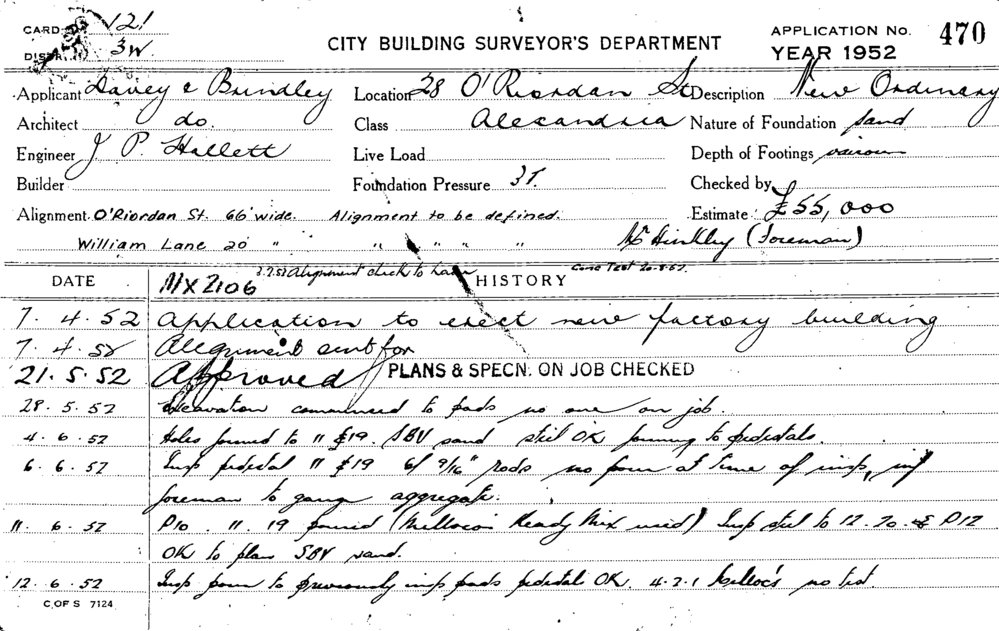 CARD No. 121
DISTRICT 3W
CITY BUILDING SURVEYOR'S DEPARTMENT
APPLICATION No. 470
YEAR 1952
Applicant Davey & Brindley Location 28 O'Riordan St Description New Ordinary
Architect do. Class Alexandria Nature of Foundation sand
Engineer J. P. Hallett Live Load Depth of Footings various
Builder Foundation Pressure 3T. Checked by
Alignment O'Riordan St. 66' wide. Alignment to be defined. Estimate £55,000
William Lane 20 " " " " " Hinkley (Foreman)
3.7.52 Alignment check to Conc Test 20-8-52
DATE MX2106 HISTORY
7. 4. 52 Application to erect new factory building
7. 4. 52 Alignment sent for
21. 5. 52 Approved PLANS & SPECN. ON JOB CHECKED
28. 5. 52 Excavation commenced to pads no one on job.
4. 6. 52 Holes formed to 11 & 19. SBV sand steel OK forming to pedestals.
6. 6. 52 Insp pedestal 11 & 19 6/ 9/16" rods no pour at time of insp, inf
foreman to gauge aggregate.
11. 6. 52 P10. 11. 19 poured (Ready Mix used) Insp steel to 12. 20. & P12
OK to plan SBV sand.
12. 6. 52 Insp pour to previously insp pads pedestals OK. 4.2.1 no test.
C. OF S 7124